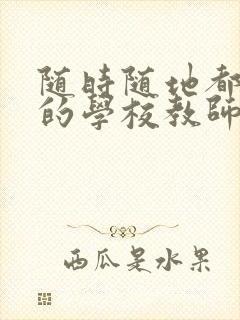 随時随地都
的學校教師
西瓜是水果